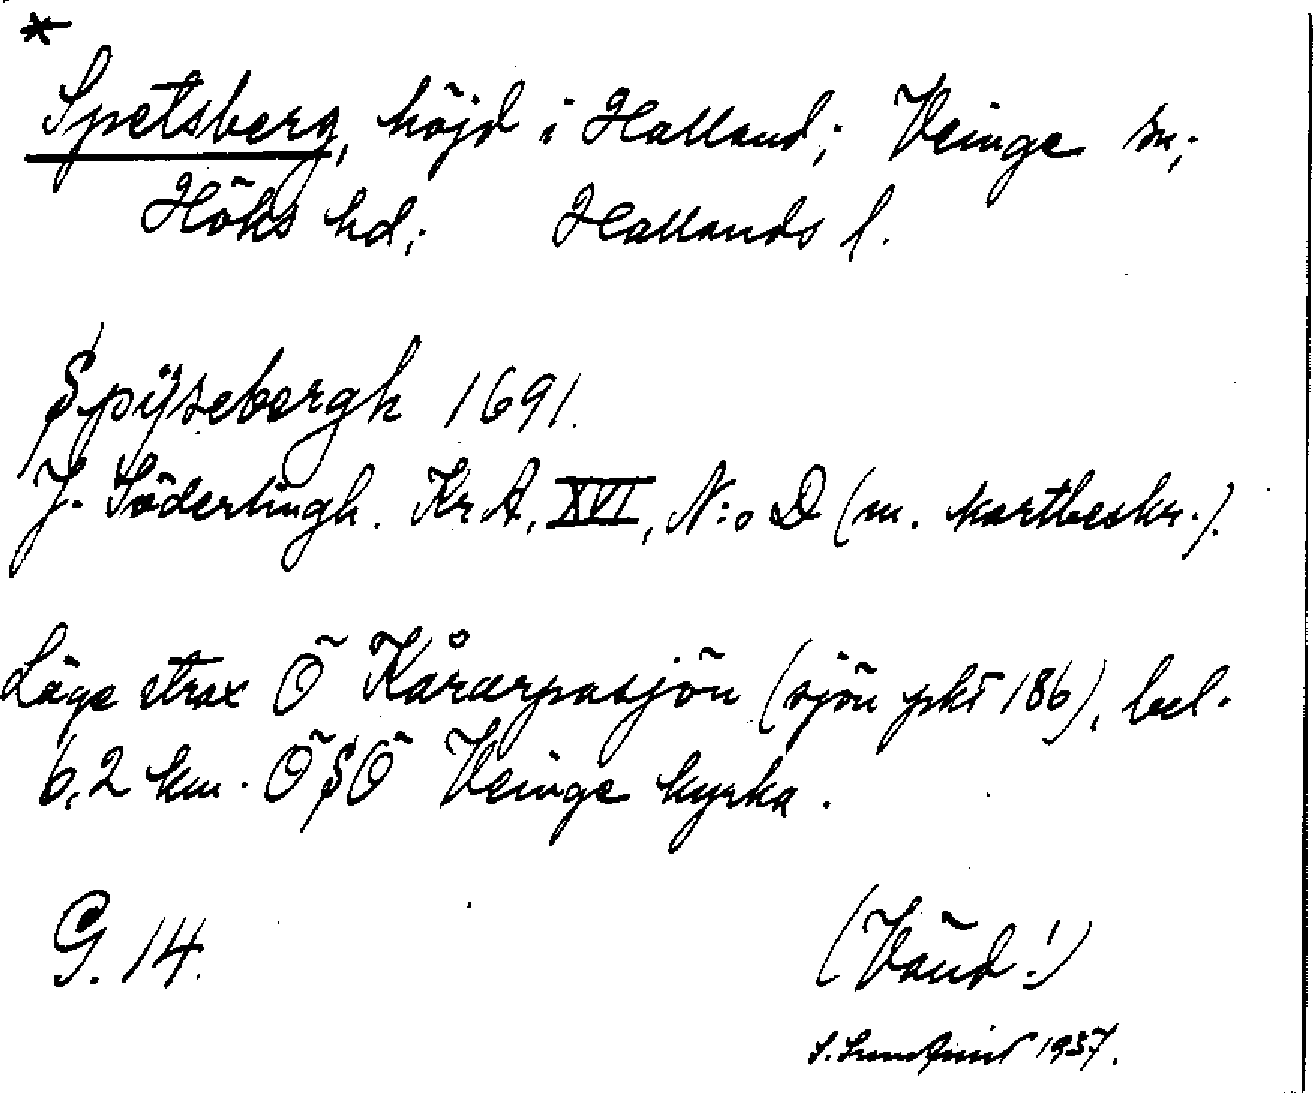 *
Spetsberg, höjd i Halland; Veinge sn;
Höks hd; Hallands l.
Spÿsebergh 1691.
J. Söderlingh. KrA, XVI, N:o D (m. kartbeskr.).
Läge strax Ö Kårarpasjön (sjön pkt 186), bel.
6,2 km. ÖSÖ Veinge kyrka.
G. 14.
(Vänd!)
1937.